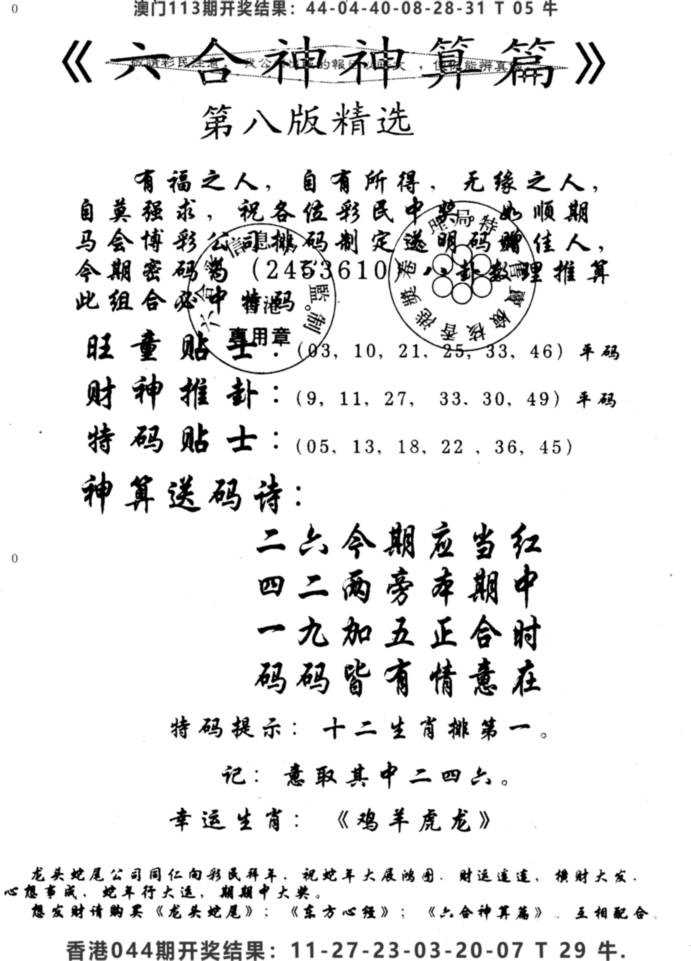 0
澳门113期开奖结果：44-04-40-08-28-31 T 05 牛
《六合神神算篇》
第八版精选
有福之人，自有所得，无缘之人，
自莫强求，祝各位彩民中奖，如顺期
马会博彩公司排码制定送明码赠佳人，
今期密码为（2453610）八卦数理推算
此组合必中特码
专用章
旺童贴士：(03, 10, 21, 25, 33, 46) 平码
财神推卦：(9, 11, 27, 33. 30, 49) 平码
特码贴士：(05, 13, 18, 22 , 36, 45)
神算送码诗：
二六今期应当红
0
四二两旁本期中
一九加五正合时
码码皆有情意在
特码提示：十二生肖排第一。
记：意取其中二四六。
幸运生肖：《鸡羊虎龙》
龙头蛇尾公司同仁向彩民拜年，祝蛇年大展鸿图，财运连连，横财大发，
心想事成，蛇年行大运，期期中大奖。
想发财请购买《龙头蛇尾》；《东方心经》；《六合神算篇》，互相配合。
香港044期开奖结果：11-27-23-03-20-07 T 29 牛.